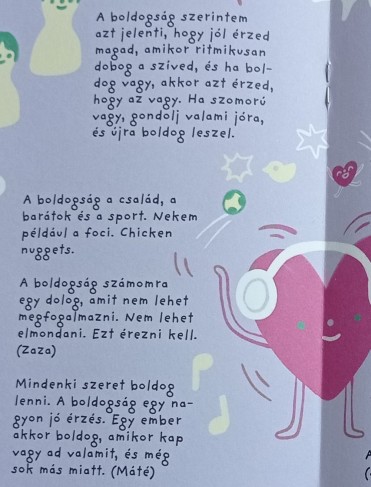 A boldogság szerintem
azt jelenti, hogy jól érzed
magad, amikor ritmikusan
dobog a szíved, és ha bol-
dog vagy, akkor azt érzed,
hogy az vagy. Ha szomorú
vagy, gondolj valami jóra,
és újra boldog leszel.
A boldogság a család, a
barátok és a sport. Nekem
például a foci. Chicken
nuggets.
A boldogság számomra
egy dolog, amit nem lehet
megfogalmazni. Nem lehet
elmondani. Ezt érezni kell.
(Zaza)
Mindenki szeret boldog
lenni. A boldogság egy na-
gyon jó érzés. Egy ember
akkor boldog, amikor kap
vagy ad valamit, és még
sok más miatt. (Máté)